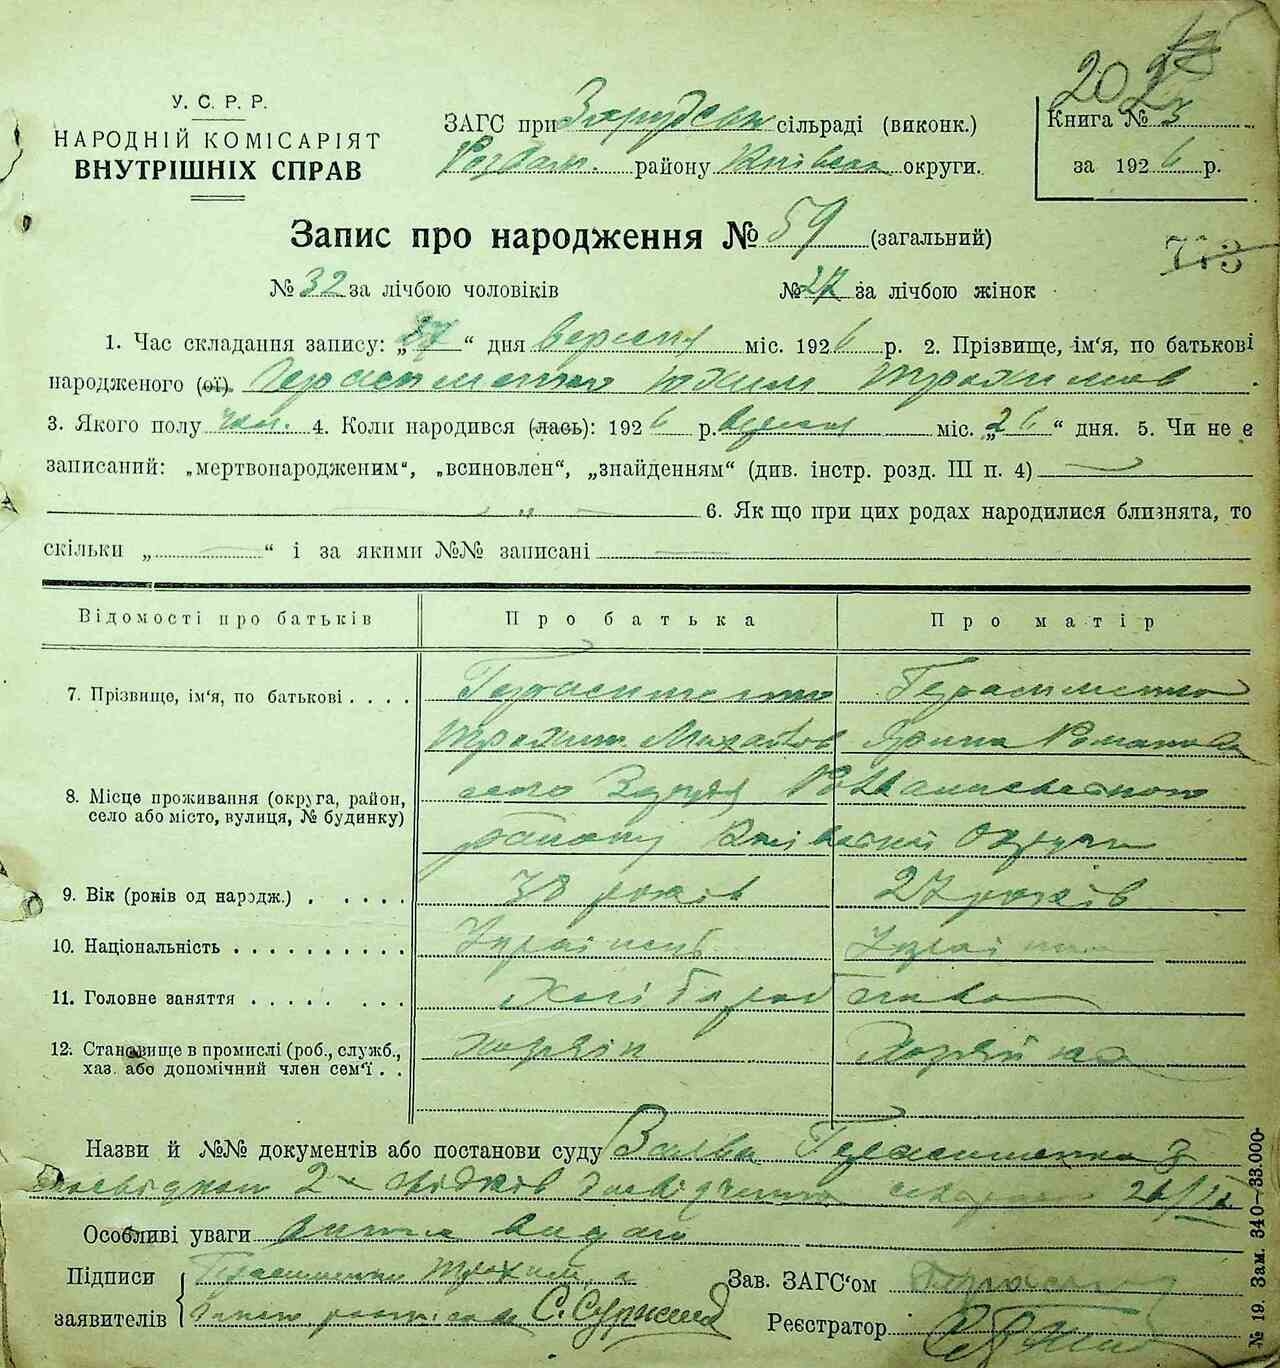 У. С. Р. Р.
НАРОДНІЙ КОМІСАРІЯТ
ВНУТРІШНІХ СПРАВ
ЗАГС при сільраді (виконк.)
району округи.
202
Книга № 3
за 1926 р.
Запис про народження № 59 (загальний)
773
№ 32 за лічбою чоловіків № 27 за лічбою жінок
1. Час складання запису: „27“ дня вересня міс. 1926 р. 2. Прізвище, ім'я, по батькові
народженого (ої). Герасименко Юхим Трохимов.
3. Якого полу чол. 4. Коли народився (лась): 1926 р. вересня міс. „26“ дня. 5. Чи не є
записаний: „мертвонародженим“, „всиновлен“, „знайденням“ (див. інстр. розд. III п. 4)
6. Як що при цих родах народилися близнята, то
скільки „ “ і за якими №№ записані
Відомості про батьків Про батька Про матір
7. Прізвище, ім'я, по батькові . . . . Герасименко Герасименко
Трохим Михайлов Ярина Романова
8. Місце проживання (округа, район,
село або місто, вулиця, № будинку)
село
району Київської Округи
9. Вік (років од народж.) . . . . . 38 років 27 років
10. Національність . . . . . . . . . . Українець
11. Головне заняття . . . . . . . . Хліборобство
12. Становище в промислі (роб., служб.,
хаз. або допомічний член сем'ї . .
Хазяїн Хазяйка
Назви й №№ документів або постанови суду Заява Герасименка з
посвідком 2-х свідків
Особливі уваги
Підписи
заявителів
Герасименко Трохим а
Зав. ЗАГС'ом
Реєстратор
№ 19. Зам. 340—33.000-